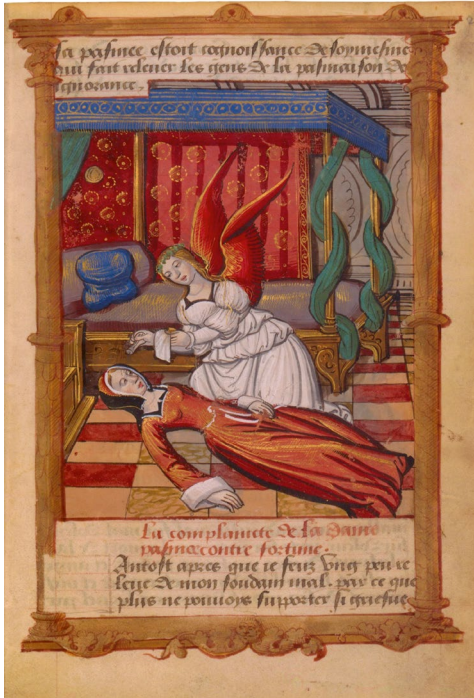 la pasmee estoit cognoissance de soymesme
qui fait relever les gens de la pasmaison de
ignorance .
La complaincte de la dame
pasmee contre fortune .
Antost apres que ie feuz ung peu re
leue de mon soudain mal . par ce que
plus ne pouvoys supporter si griefue